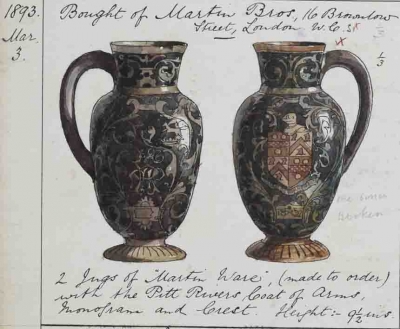 1893.
Mar.
3.
Bought of Martin Bros, 16 Brownlow
Street, London W.C.
1/3
broken
2 Jugs of "Martin Ware", (made to order)
with the Pitt Rivers Coat of Arms,
Monogram and Crest. Height:- 9½ ins.